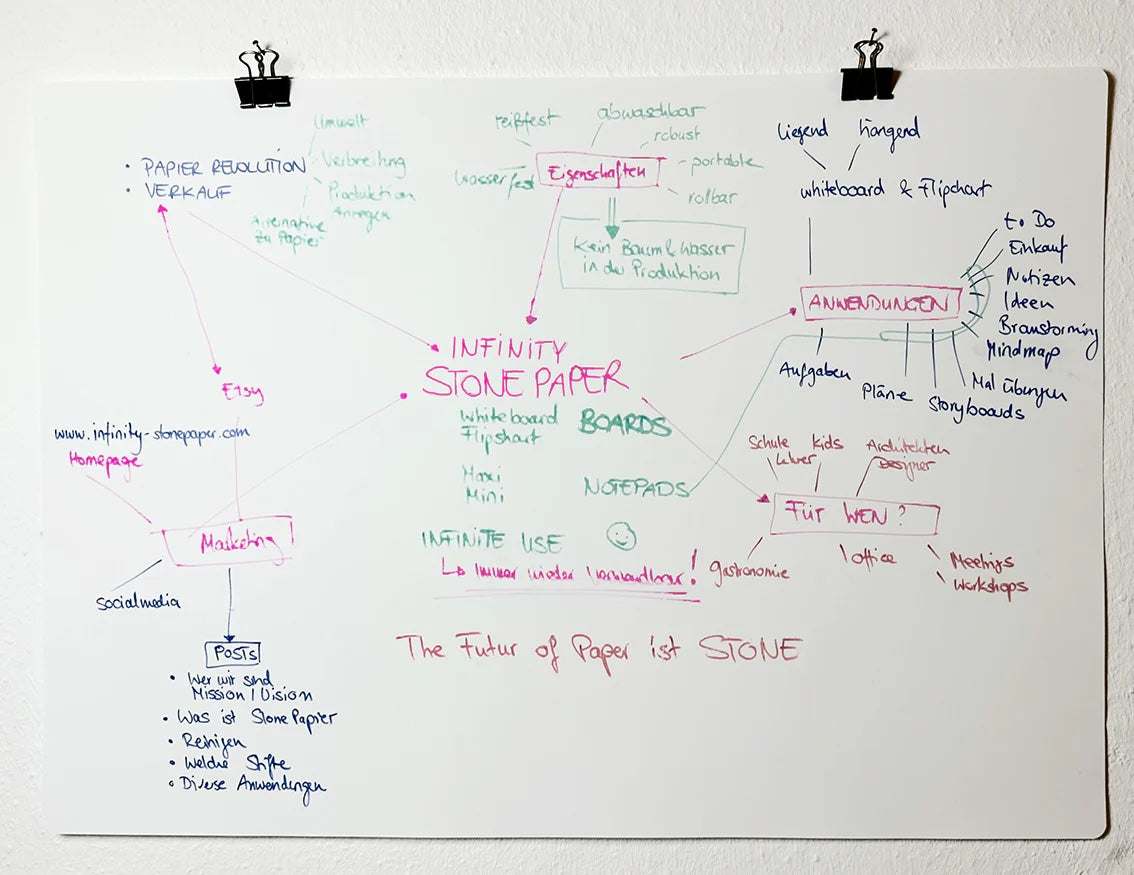 Umwelt
• PAPIER REVOLUTION
• VERKAUF
Verbreitung
Produktion
Anregen
Alternative
zu Papier
reißfest
abwaschbar
robust
wasserfest
Eigenschaften
portable
rollbar
Kein Baum & Wasser
in der Produktion
liegend
hängend
whiteboard & Flipchart
ANWENDUNGEN
to Do
Einkauf
Notizen
Ideen
Brainstorming
Mindmap
Aufgaben
Pläne
Storyboards
Mal Übungen
INFINITY
STONE PAPER
Whiteboard
Flipshart
BOARDS
Maxi
Mini
NOTEPADS
INFINITE USE
↳ Immer wieder verwendbar!
Etsy
www.infinity-stonepaper.com
Homepage
Marketing
Socialmedia
POSTS
• Wer wir sind
Mission / Vision
• Was ist StonePapier
• Reinigen
• Welche Stifte
• Diverse Anwendungen
Schule
Lehrer
kids
Architekten
Designer
Für WEN?
gastronomie
office
Meetings
Workshops
The Futur of Paper ist STONE